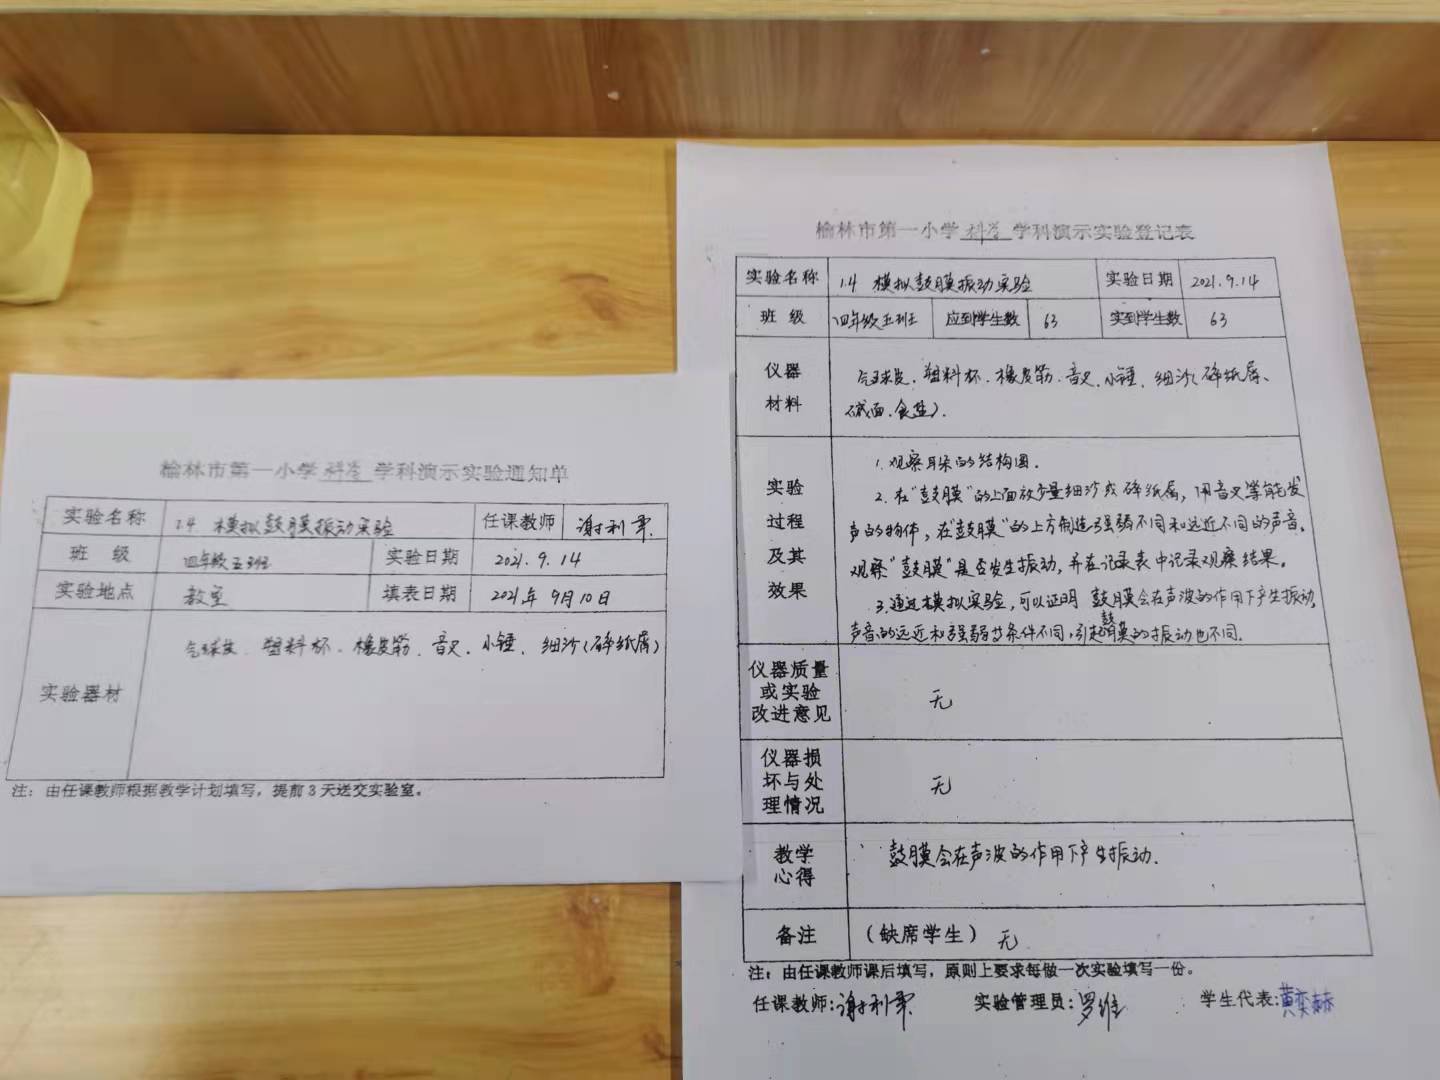 榆林市第一小学 科学 学科演示实验通知单
实验名称 1.4 模拟鼓膜振动实验 任课教师 谢利军
班 级 四年级五班 实验日期 2021.9.14
实验地点 教室 填表日期 2021年9月10日
实验器材 气球皮、塑料杯、橡皮筋、音叉、小锤、细沙(碎纸屑)
注：由任课教师根据教学计划填写，提前3天送交实验室。
榆林市第一小学 科学 学科演示实验登记表
实验名称 1.4 模拟鼓膜振动实验 实验日期 2021.9.14
班 级 四年级五班 应到学生数 63 实到学生数 63
仪器材料 气球皮、塑料杯、橡皮筋、音叉、小锤、细沙(碎纸屑、
碱面、食盐).
实验过程及其效果 1.观察耳朵的结构图.
2.在“鼓膜”的上面放少量细沙或碎纸屑，用音叉等能发
声的物体，在“鼓膜”的上方制造强弱不同和远近不同的声音。
观察“鼓膜”是否发生振动，并在记录表中记录观察结果。
3.通过模拟实验，可以证明 鼓膜会在声波的作用下产生振动,
声音的远近和强弱等条件不同,引起鼓膜的振动也不同.
仪器质量或实验改进意见 无
仪器损坏与处理情况 无
教学心得 鼓膜会在声波的作用下产生振动.
备注 （缺席学生） 无
注：由任课教师课后填写，原则上要求每做一次实验填写一份。
任课教师:谢利军 实验管理员:罗维 学生代表:黄奕赫